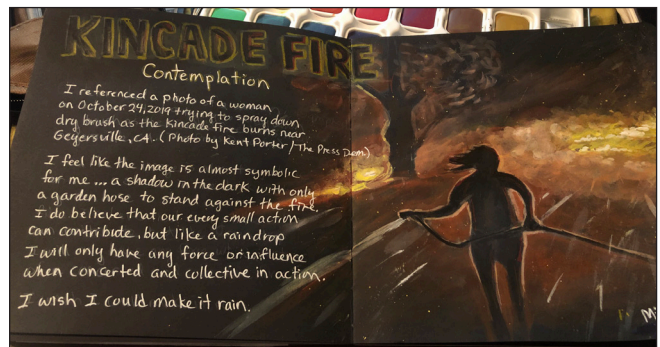 KINCADE FIRE
Contemplation
I referenced a photo of a woman
on October 24, 2019 trying to spray down
dry brush as the Kincade fire burns near
Geyersville, CA. (Photo by Kent Porter/The Press Dem)
I feel like the image is almost symbolic
for me ... a shadow in the dark with only
a garden hose to stand against the fire.
I do believe that our every small action
can contribute, but like a raindrop
I will only have any force or influence
when concerted and collective in action.
I wish I could make it rain.